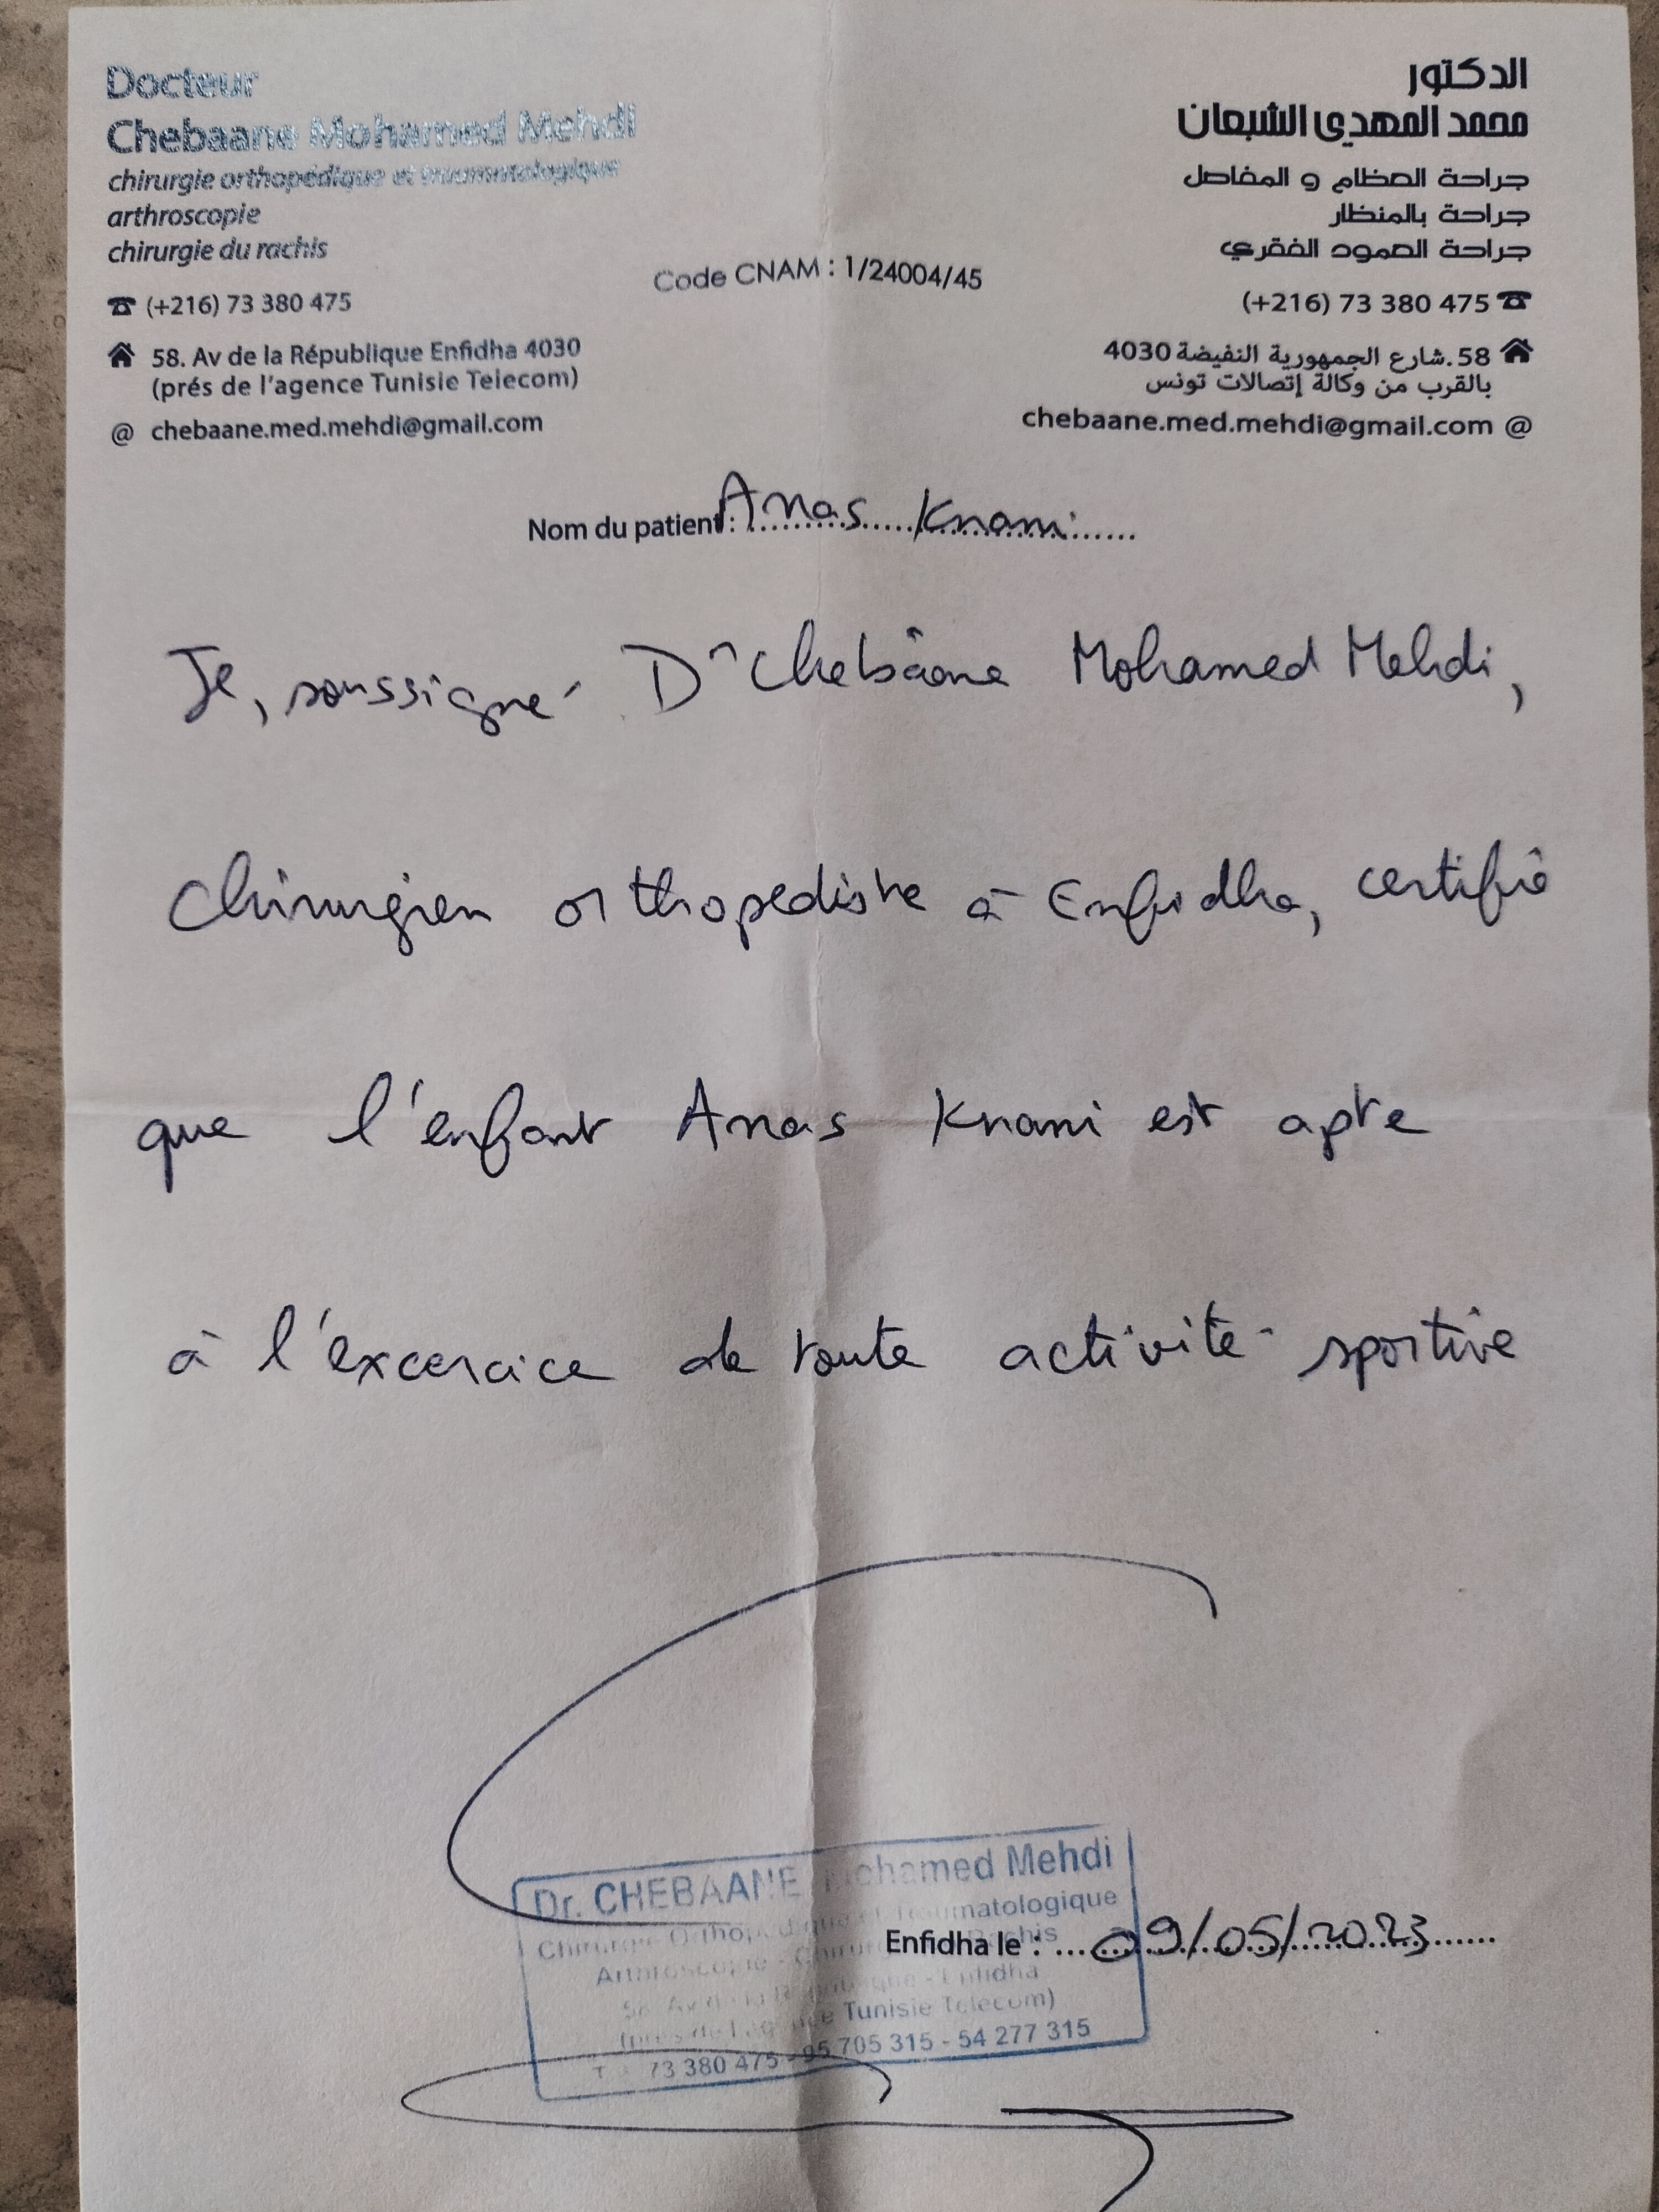 Docteur
Chebaane Mohamed Mehdi
chirurgie orthopédique et traumatologique
arthroscopie
chirurgie du rachis
(+216) 73 380 475
58. Av de la République Enfidha 4030
(prés de l'agence Tunisie Telecom)
@ chebaane.med.mehdi@gmail.com
Code CNAM : 1/24004/45
الدكتور
محمد المهدي الشبعان
جراحة العظام و المفاصل
جراحة بالمنظار
جراحة العمود الفقري
(+216) 73 380 475
58.شارع الجمهورية النفيضة 4030
بالقرب من وكالة إتصالات تونس
chebaane.med.mehdi@gmail.com @
Nom du patient : Anas Knani
Je, soussigné Dr Chebâane Mohamed Mehdi,
Chirurgien orthopediste à Enfidha, certifie
que l'enfant Anas Knani est apte
à l'excercice de toute activité sportive
Dr. CHEBAANE Mohamed Mehdi
Chirurgie Orthopédique et Traumatologique
Arthroscopie - Chirurgie Rachis
58 Av de la République - Enfidha
(près de l'agence Tunisie Telecom)
73 380 475 - 95 705 315 - 54 277 315
Enfidha le : 09/05/2023